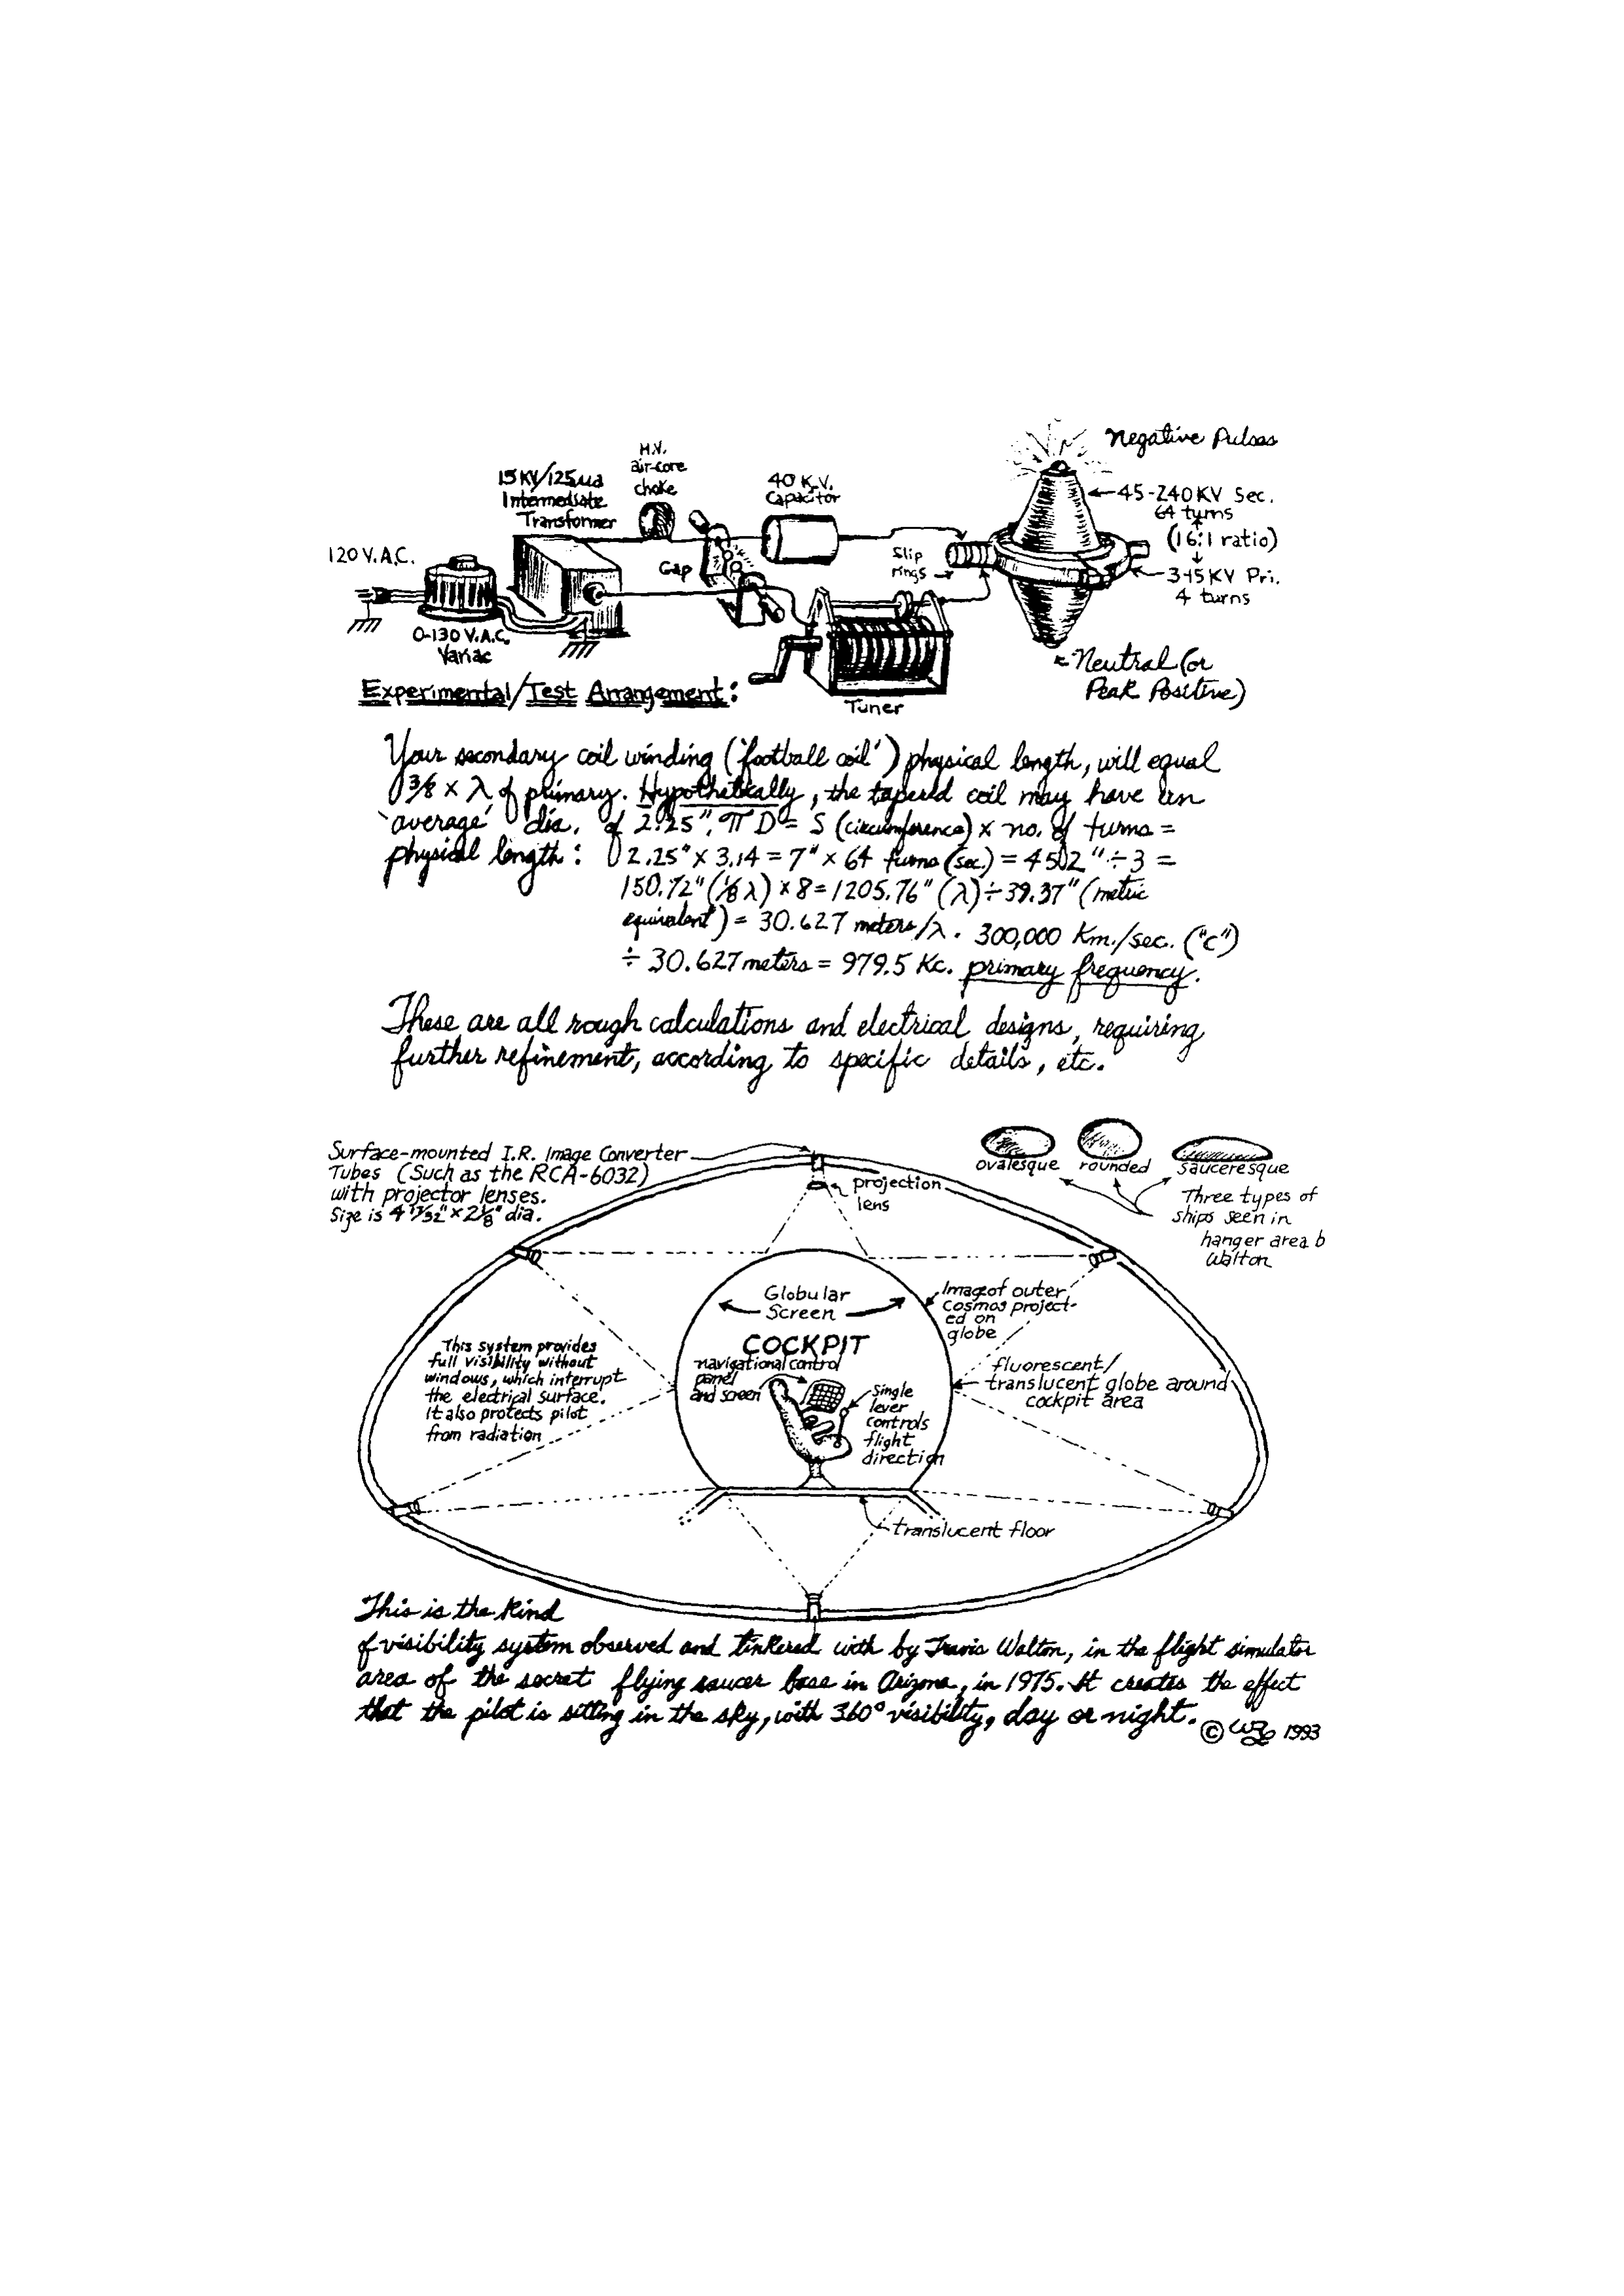 Negative Pulses
H.V.
air-core
choke
15KV/125ua
Intermediate
Transformer
40 K.V.
Capacitor
45-240KV Sec.
64 turns
(16:1 ratio)
3-15KV Pri.
4 turns
120 V.A.C.
Gap
Slip
rings
0-130 V.A.C.
Variac
Neutral (or
Peak Positive)
Experimental/Test Arrangement:
Tuner
Your secondary coil winding ('football coil') physical length, will equal
3/8 x λ of primary. Hypothetically, the tapered coil may have an
'average' dia. of 2.25". π D = S (circumference) x no. of turns =
physical length: 2.25" x 3.14 = 7" x 64 turns (sec.) = 452 " ÷ 3 =
150.72" (1/8 λ) x 8 = 1205.76" (λ) ÷ 39.37" (metric
equivalent) = 30.627 meters/λ. 300,000 Km./sec. ("c")
÷ 30.627 meters = 979.5 Kc. primary frequency.
These are all rough calculations and electrical designs, requiring
further refinement, according to specific details, etc.
Surface-mounted I.R. Image Converter
Tubes (Such as the RCA-6032)
with projector lenses.
Size is 4 17/32" x 2 1/8" dia.
projection
lens
ovalesque rounded sauceresque
Three types of
ships seen in
hanger area b
Walton
Globular
Screen
Image of outer
cosmos project-
ed on
globe
COCKPIT
navigational control
panel
and screen
Single
lever
controls
flight
direction
This system provides
full visibility without
windows, which interrupt
the electrical surface.
It also protects pilot
from radiation
fluorescent/
translucent globe around
cockpit area
translucent floor
This is the kind
of visibility system observed and tinkered with by Travis Walton, in the flight simulator
area of the secret flying saucer base in Arizona, in 1975. It creates the effect
that the pilot is sitting in the sky, with 360° visibility, day or night.
© 1993